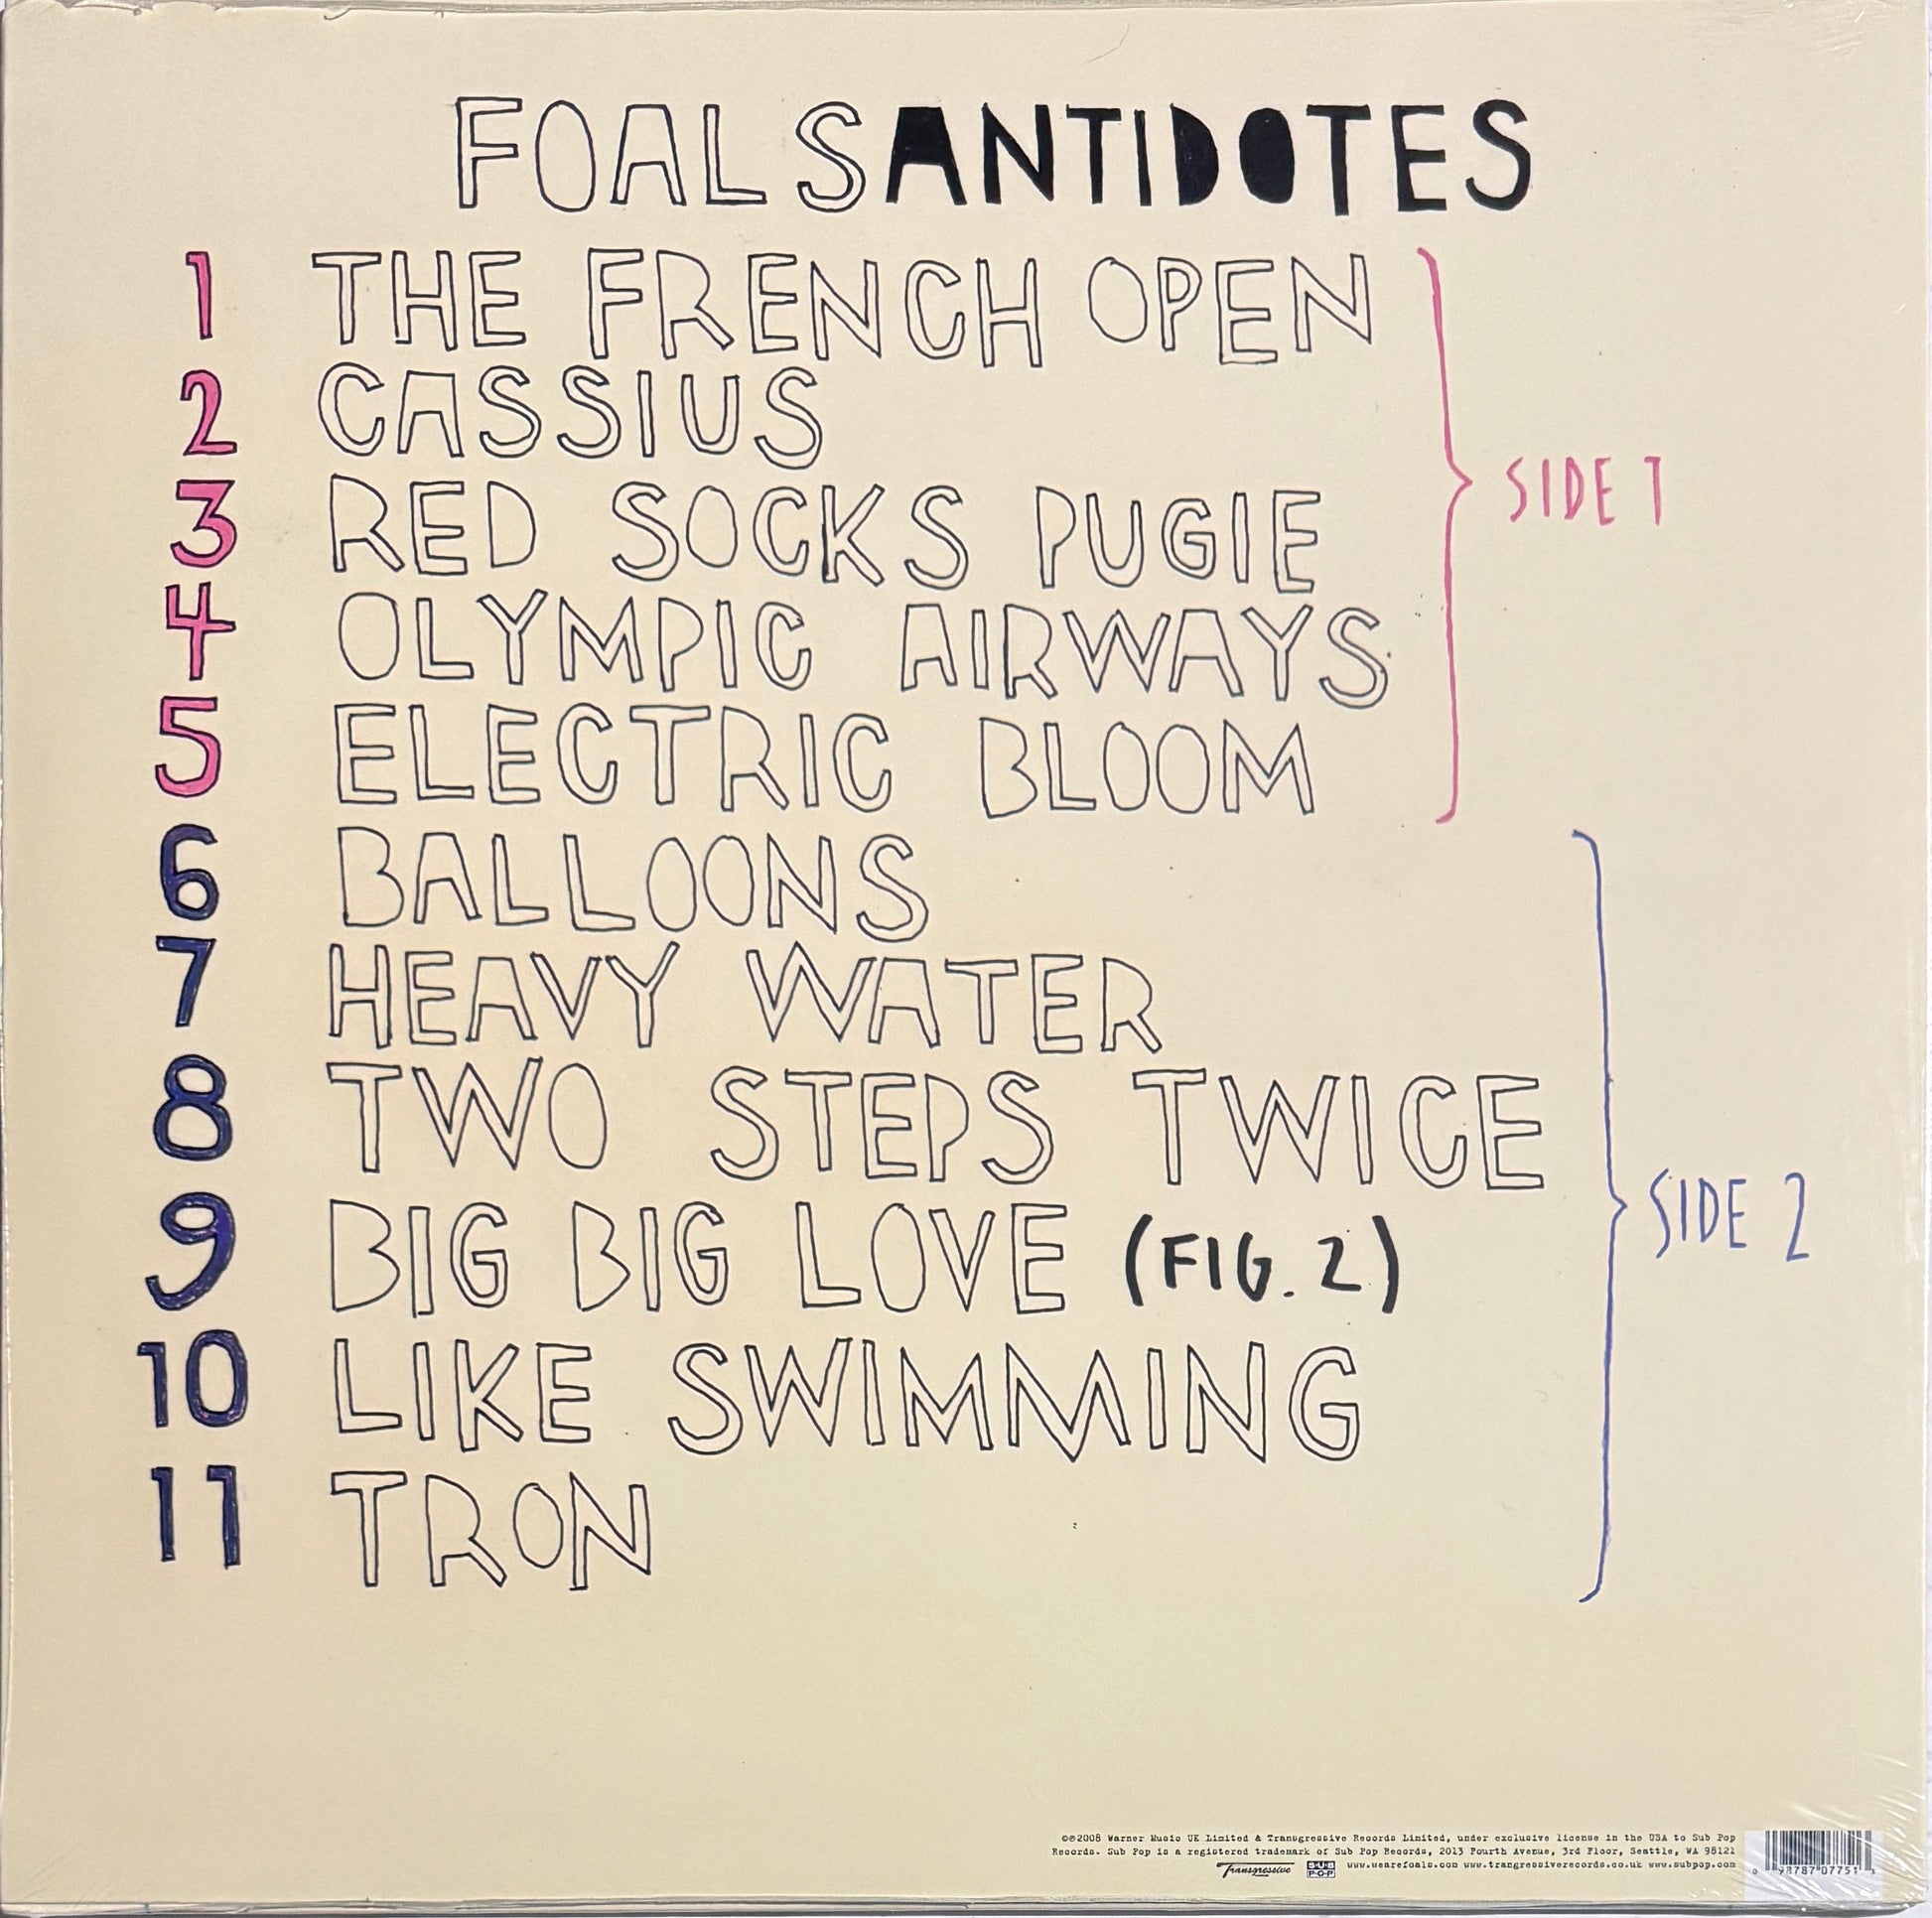 FOALS ANTIDOTES
1 THE FRENCH OPEN
2 CASSIUS
3 RED SOCKS PUGIE
4 OLYMPIC AIRWAYS
5 ELECTRIC BLOOM
SIDE 1
6 BALLOONS
7 HEAVY WATER
8 TWO STEPS TWICE
9 BIG BIG LOVE (FIG. 2)
10 LIKE SWIMMING
11 TRON
SIDE 2
©℗2008 Warner Music UK Limited & Transgressive Records Limited, under exclusive license in the USA to Sub Pop
Records. Sub Pop is a registered trademark of Sub Pop Records, 2013 Fourth Avenue, 3rd Floor, Seattle, WA 98121
Transgressive SUB POP www.wearefoals.com www.trangressiverecords.co.uk www.subpop.com
0 98787 07751